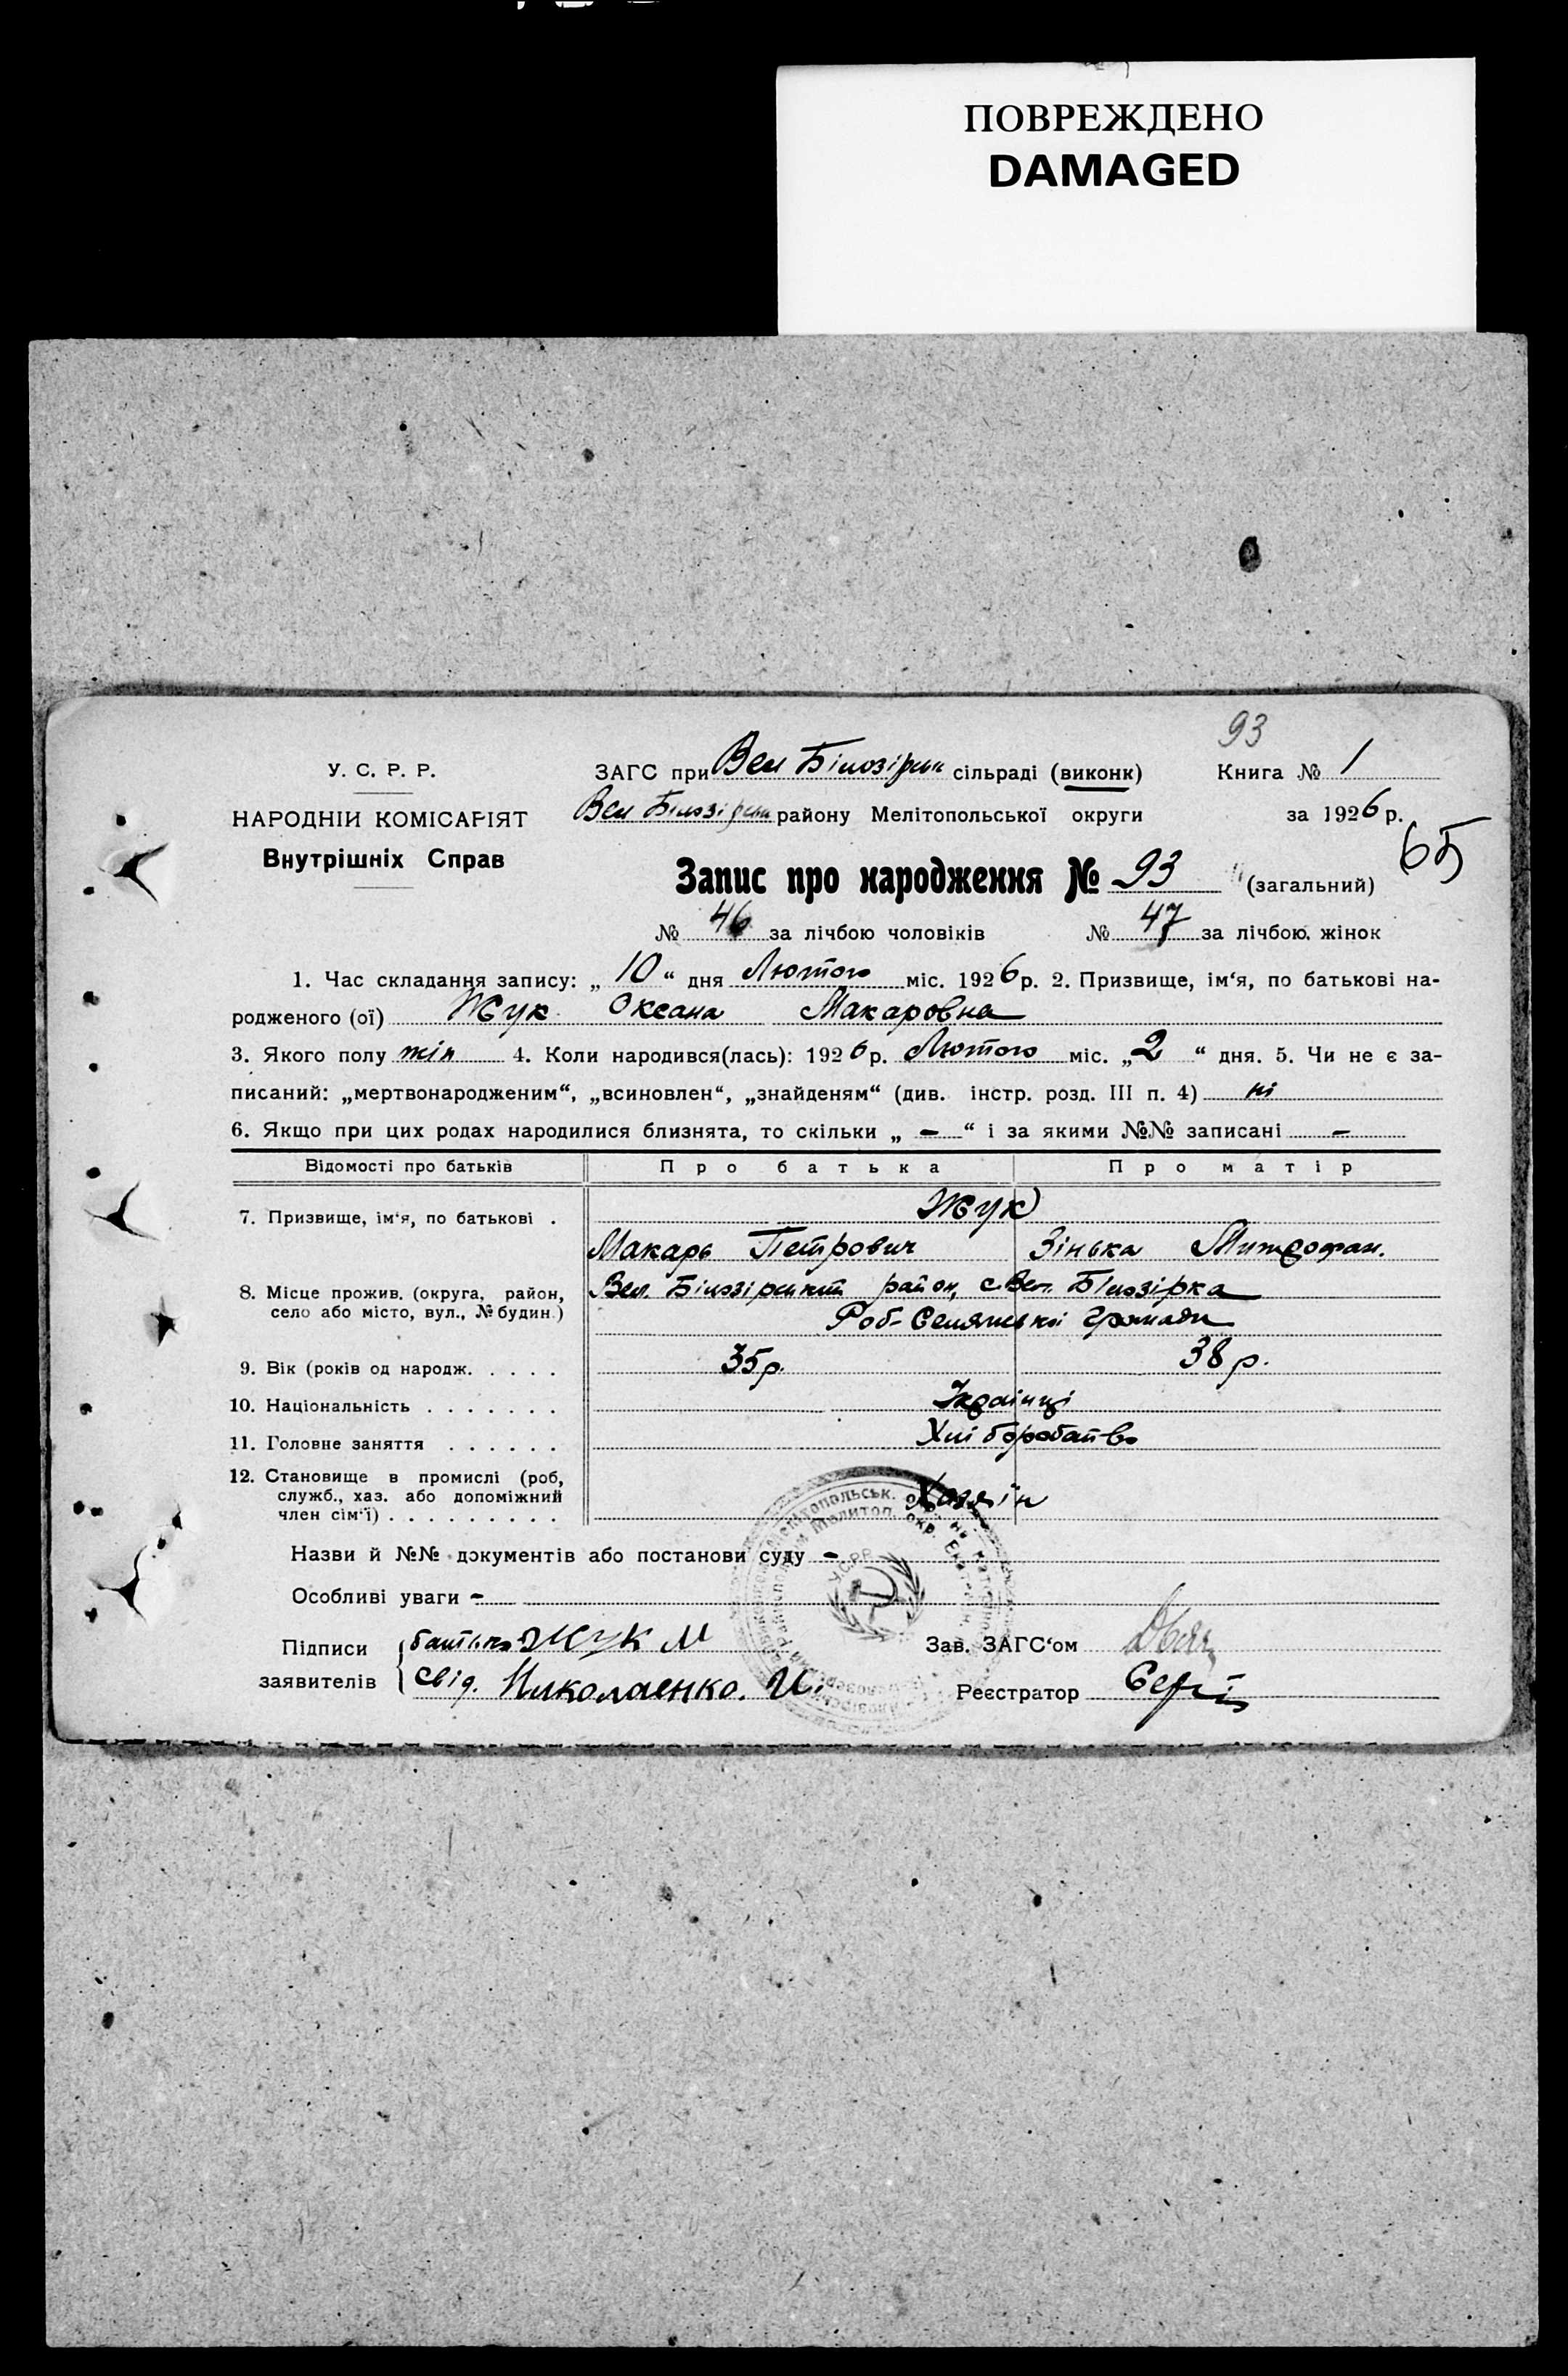 ПОВРЕЖДЕНО
DAMAGED
93
У. С. Р. Р.
ЗАГС при Вел Білозірськ сільраді (виконк)
Книга № 1
НАРОДНІЙ КОМІСАРІЯТ
Вел Білозірськ району Мелітопольської округи
за 1926 р.
65
Внутрішніх Справ
Запис про народження № 93 (загальний)
№ 46 за лічбою чоловіків № 47 за лічбою жінок
1. Час складання запису: „ 10 “ дня Лютого міс. 1926 р. 2. Призвище, ім‘я, по батькові на-
родженого (ої) Жук Оксана Макаровна
3. Якого полу жін 4. Коли народився(лась): 1926 р. Лютого міс. „ 2 “ дня. 5. Чи не є за-
писаний: „мертвонародженим“, „всиновлен“, „знайденям“ (див. інстр. розд. III п. 4) ні
6. Якщо при цих родах народилися близнята, то скільки „ – “ і за якими №№ записані –
Відомості про батьків Про батька Про матір
7. Призвище, ім‘я, по батькові . Жук
Макарь Петрович Зінька Митрофан.
8. Місце прожив. (округа, район, Вел. Білозірський район, с Вел. Білозірка
село або місто, вул., № будин.) Роб-Селянської громади
9. Вік (років од народж. . . . . 35 р. 38 р.
10. Національність . . . . . . . Українці
11. Головне заняття . . . . . . Хліборобство
12. Становище в промислі (роб,
служб., хаз. або допоміжний Хазяін
член сім‘ї) . . . . . . . . .
Назви й №№ документів або постанови суду –
Особливі уваги –
У.С.Р.Р.
Підписи батько Жук М
Зав. ЗАГС‘ом
заявителів свід. Николаенко. И.
Реєстратор